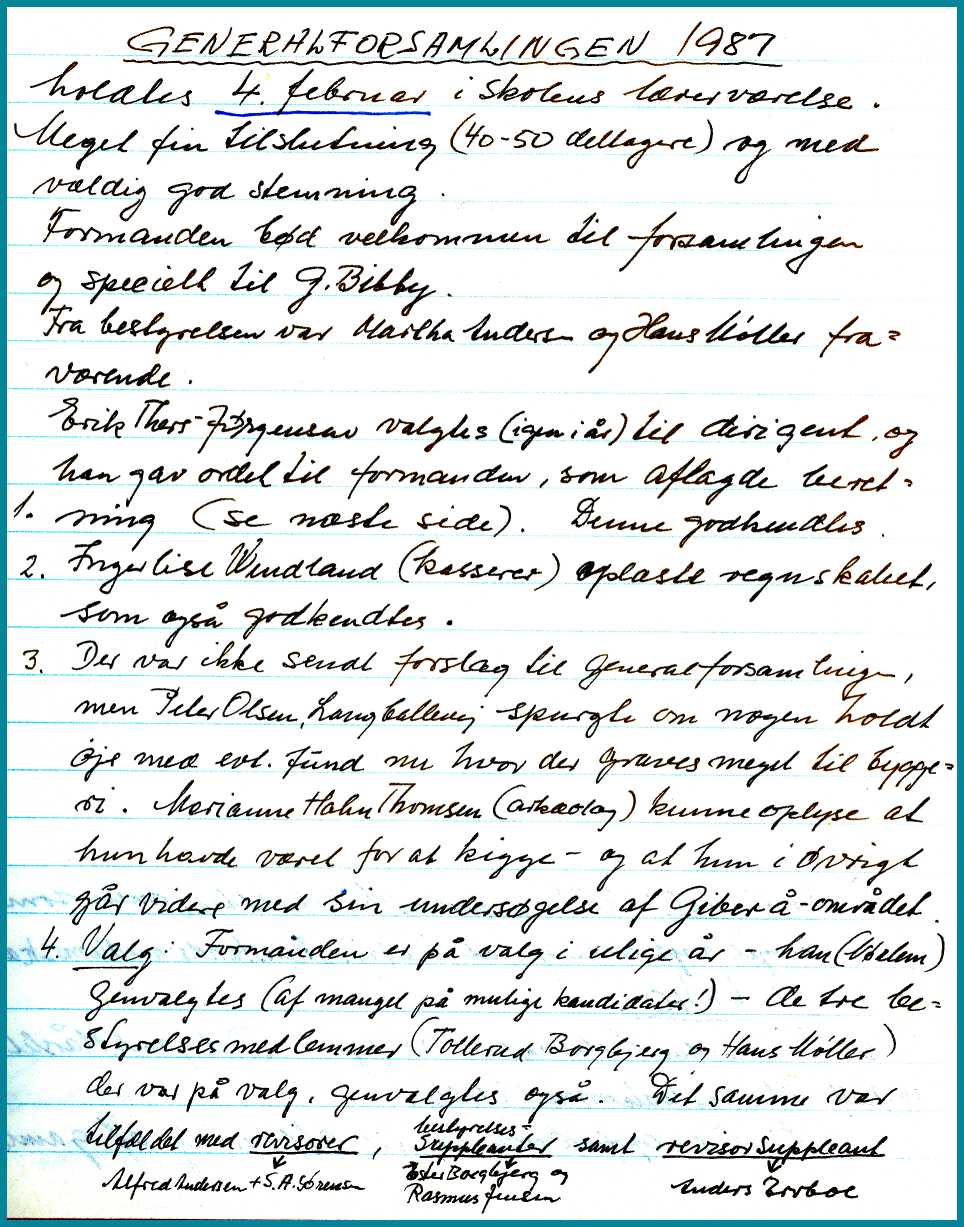 GENERALFORSAMLINGEN 1987
holdtes 4. februar i skolens lærerværelse.
Meget fin tilslutning (40-50 deltagere) og med
vældig god stemning.
Formanden bød velkommen til forsamlingen
og specielt til G. Bibby.
Fra bestyrelsen var Martha Andersen og Hans Møller fra=
værende.
Erik Thers-Jørgensen valgtes (igen i år) til dirigent, og
han gav ordet til formanden, som aflagde beret=
1. ning (se næste side). Denne godkendtes.
2. Inger Lise Wendland (kasserer) oplæste regnskabet,
som også godkendtes.
3. Der var ikke sendt forslag til generalforsamlingen,
men Peter Olsen, Langballevej spurgte om nogen holdt
øje med evt. fund nu hvor der graves meget til bygge=
ri. Marianne Høhn Thomsen (arkæolog) kunne oplyse at
hun havde været for at kigge - og at hun i øvrigt
går videre med sin undersøgelse af Giber å-området.
4. Valg: Formanden er på valg i ulige år - han
genvalgtes (af mangel på mulige kandidater!) - De tre be=
styrelsesmedlemmer (Tollerud Borgbjerg og Hans Møller)
der var på valg, genvalgtes også. Det samme var
tilfældet med revisorer, bestyrelses-suppleanter samt revisorsuppleant
Alfred Andersen + S.A. Sørensen Ester Borgbjerg og Anders Errboe
Rasmus Jensen